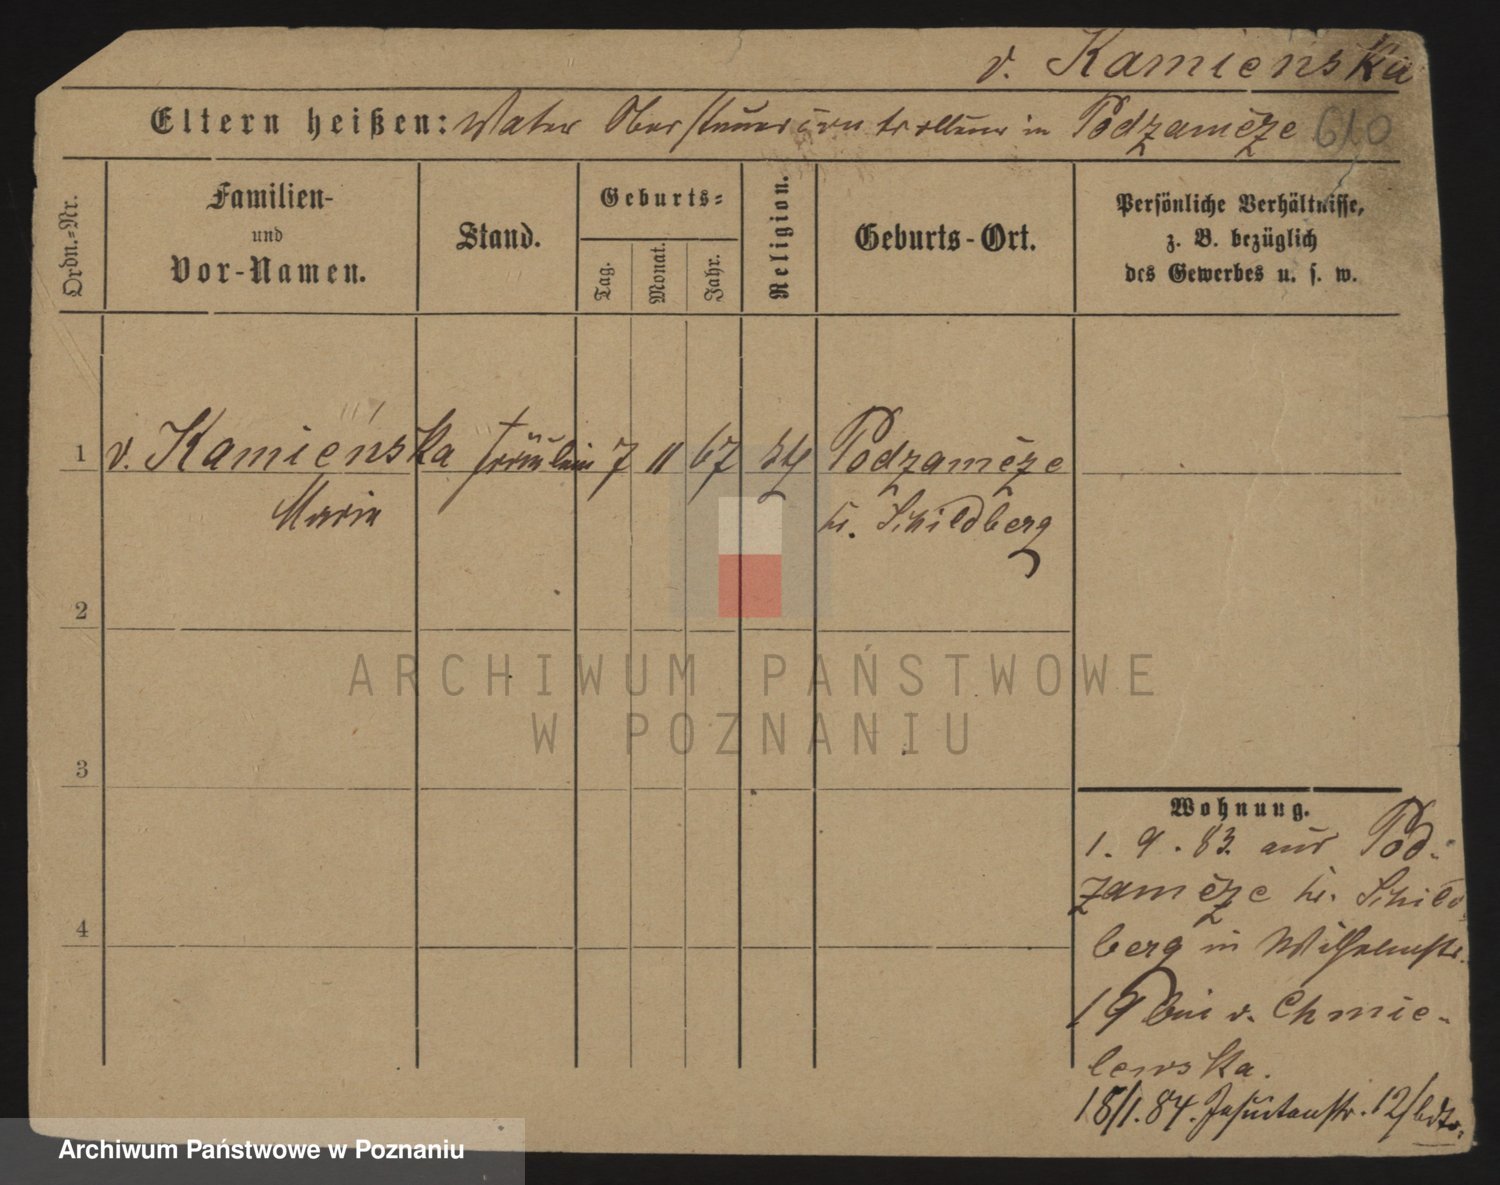 v. Kamienska
Eltern heißen: Vater Obersteuercontrolleur in Podzamcze 610
Ordn.-Nr.
Familien-
und
Vor-Namen.
Stand.
Geburts-
Tag.
Monat.
Jahr.
Religion.
Geburts-Ort.
Persönliche Verhältnisse,
z. B. bezüglich
des Gewerbes u. s. w.
1 v. Kamienska Fräulein 7 11 67 Podzamcze
Maria Kr. Schildberg
2
3
4
Wohnung.
1. 9. 83. aus Pod-
zamcze Kr. Schild
berg in Wilhelmstr.
19 bei v. Chmie-
lewska.
18/1. 84. Jesuitenstr. 12/
ARCHIWUM PAŃSTWOWE
W POZNANIU
Archiwum Państwowe w Poznaniu